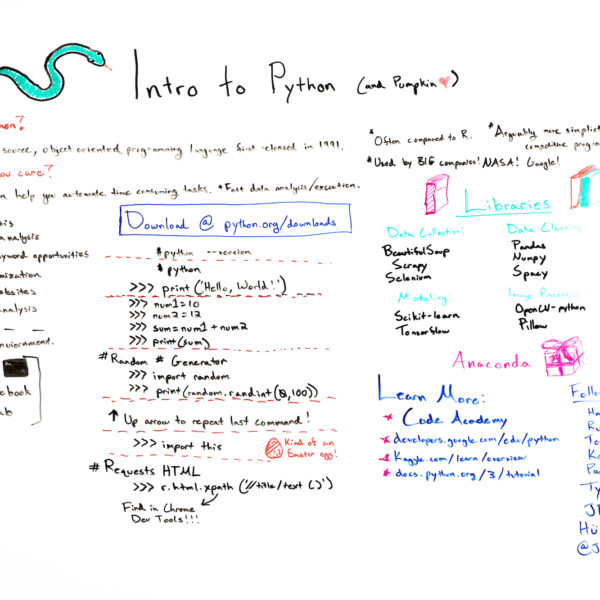 Intro to Python (and Pumpkin ♥)
hon?
source, object oriented programming language first released in 1991.
you care?
n help you automate time consuming tasks. *Fast data analysis/execution.
*Often compared to R.
*Arguably more simplisti
competitive progra
*Used by BIG companies! NASA! Google!
sis
analysis
yword opportunities
mization
ebsites
analysis
enviornment.
ebook
ab
Download @ python.org/downloads
$ python --version
$ python
>>> print('Hello, World!')
>>> num1=10
>>> num2=12
>>> sum=num1+num2
>>> print(sum)
#Random # Generator
>>> import random
>>> print(random.randint(0,100))
↑ Up arrow to repeat last command!
>>> import this
Kind of an
Easter egg!
# Requests HTML
>>> r.html.xpath('//title/text()')
Find in Chrome
Dev Tools!!!
Libraries
Data Collection:
BeautifulSoup
Scrapy
Selenium
Data Clean
Pandas
Numpy
Spacy
Modeling:
Scikit-learn
Tensorflow
Image Proces
OpenCV-python
Pillow
Anaconda
Learn More:
* Code Academy
* developers.google.com/edu/python
* Kaggle.com/learn/overview
* docs.python.org/3/tutorial
Follo
Ha
Ru
To
Ka
Pa
Ty
JR
Hü
@J